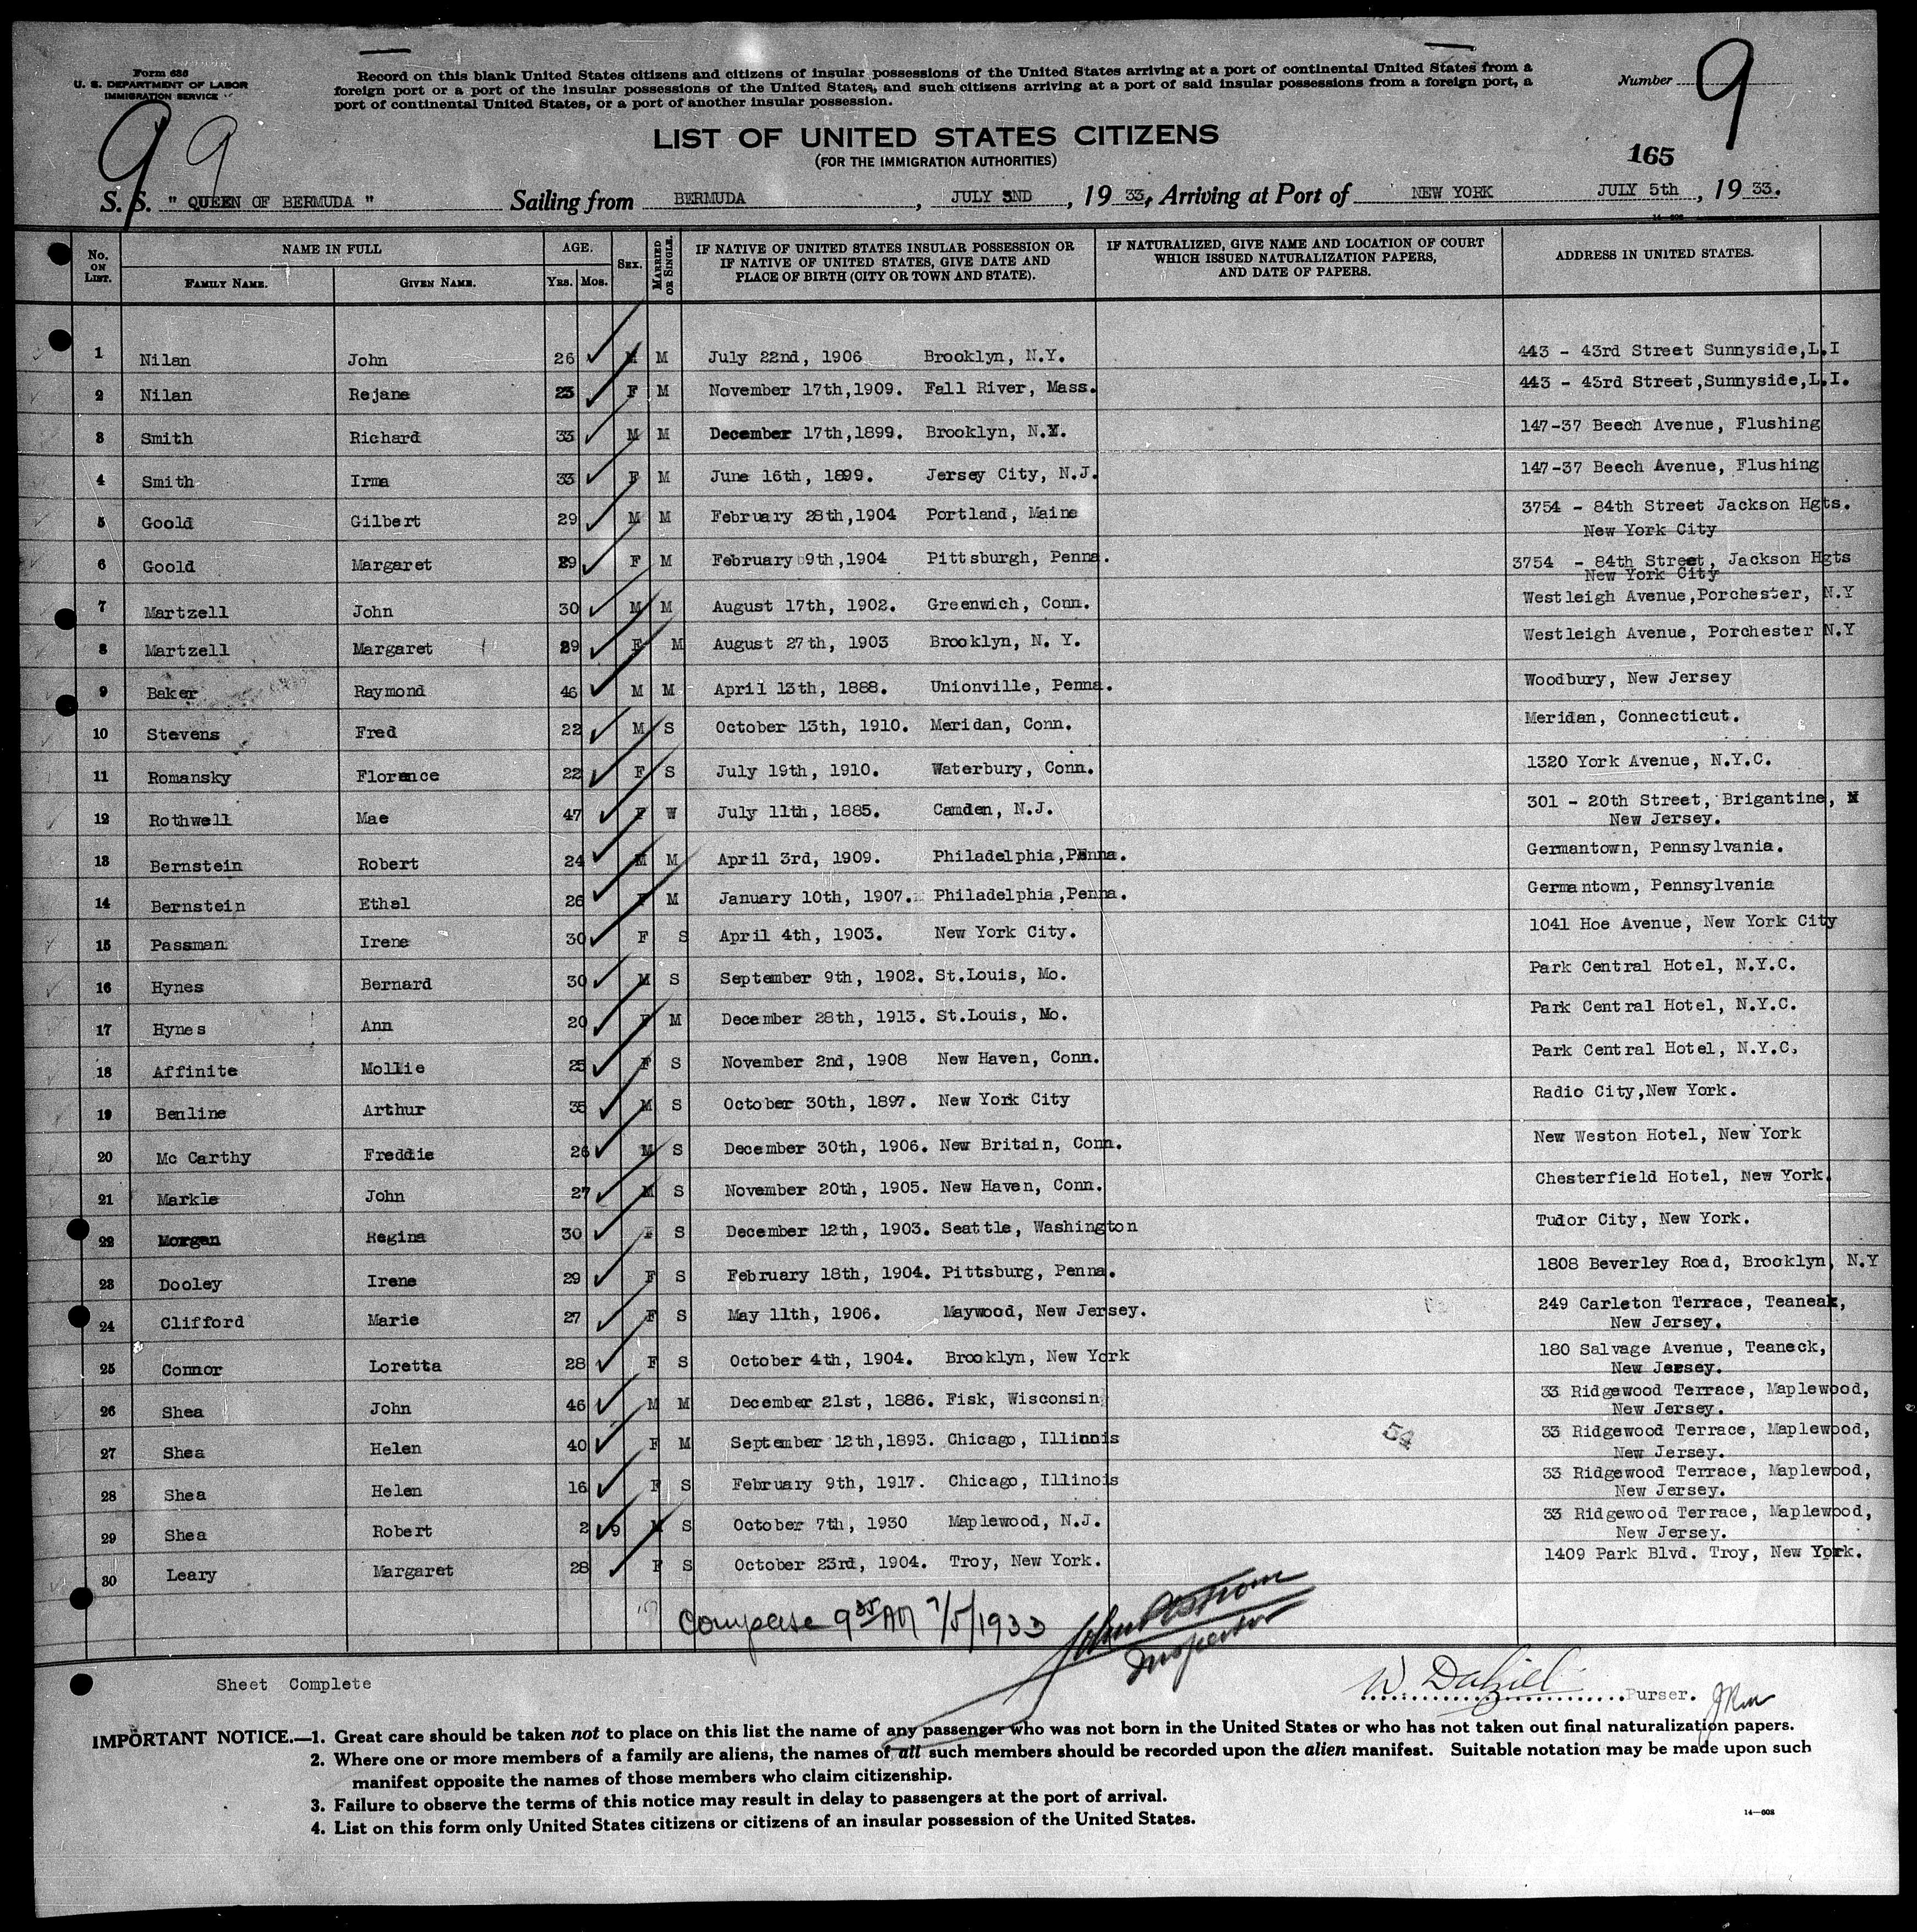 Form 630
U. S. DEPARTMENT OF LABOR
IMMIGRATION SERVICE
Record on this blank United States citizens and citizens of insular possessions of the United States arriving at a port of continental United States from a
foreign port or a port of the insular possessions of the United States, and such citizens arriving at a port of said insular possessions from a foreign port, a
port of continental United States, or a port of another insular possession.
Number 9
9 9
LIST OF UNITED STATES CITIZENS
(FOR THE IMMIGRATION AUTHORITIES)
165
S. S. " QUEEN OF BERMUDA " Sailing from BERMUDA, JULY 3ND, 19 33, Arriving at Port of NEW YORK JULY 5th, 19 33.
14-608
No. ON LIST. NAME IN FULL FAMILY NAME. GIVEN NAME. AGE. YRS. MOS. SEX. MARRIED OR SINGLE. IF NATIVE OF UNITED STATES INSULAR POSSESSION OR IF NATIVE OF UNITED STATES, GIVE DATE AND PLACE OF BIRTH (CITY OR TOWN AND STATE). IF NATURALIZED, GIVE NAME AND LOCATION OF COURT WHICH ISSUED NATURALIZATION PAPERS, AND DATE OF PAPERS. ADDRESS IN UNITED STATES.
1 Nilan John 26 M M July 22nd, 1906 Brooklyn, N.Y. 443 - 43rd Street Sunnyside,L.I
2 Nilan Rejane 23 F M November 17th,1909. Fall River, Mass. 443 - 43rd Street,Sunnyside,L.I.
3 Smith Richard 33 M M December 17th,1899. Brooklyn, N.Y. 147-37 Beech Avenue, Flushing
4 Smith Irma 33 F M June 16th, 1899. Jersey City, N.J. 147-37 Beech Avenue, Flushing
5 Goold Gilbert 29 M M February 28th,1904 Portland, Maine 3754 - 84th Street Jackson Hgts.
New York City
6 Goold Margaret 29 F M February 9th,1904 Pittsburgh, Penna. 3754 - 84th Street, Jackson Hgts
New York City
7 Martzell John 30 M M August 17th, 1902. Greenwich, Conn. Westleigh Avenue,Porchester, N.Y
8 Martzell Margaret 29 F M August 27th, 1903 Brooklyn, N. Y. Westleigh Avenue, Porchester N.Y
9 Baker Raymond 46 M M April 13th, 1888. Unionville, Penna. Woodbury, New Jersey
10 Stevens Fred 22 M S October 13th, 1910. Meridan, Conn. Meridan, Connecticut.
11 Romansky Florence 22 F S July 19th, 1910. Waterbury, Conn. 1320 York Avenue, N.Y.C.
12 Rothwell Mae 47 F W July 11th, 1885. Camden, N.J. 301 - 20th Street, Brigantine, N
New Jersey.
13 Bernstein Robert 24 M M April 3rd, 1909. Philadelphia,Penna. Germantown, Pennsylvania.
14 Bernstein Ethel 26 F M January 10th, 1907. Philadelphia,Penna. Germantown, Pennsylvania
15 Passman Irene 30 F S April 4th, 1903. New York City. 1041 Hoe Avenue, New York City
16 Hynes Bernard 30 M S September 9th, 1902. St.Louis, Mo. Park Central Hotel, N.Y.C.
17 Hynes Ann 20 F M December 28th, 1913. St.Louis, Mo. Park Central Hotel, N.Y.C.
18 Affinite Mollie 25 F S November 2nd, 1908 New Haven, Conn. Park Central Hotel, N.Y.C.
19 Benline Arthur 35 M S October 30th, 1897. New York City Radio City,New York.
20 Mc Carthy Freddie 26 M S December 30th, 1906. New Britain, Conn. New Weston Hotel, New York
21 Markle John 27 M S November 20th, 1905. New Haven, Conn. Chesterfield Hotel, New York.
22 Morgan Regina 30 F S December 12th, 1903. Seattle, Washington Tudor City, New York.
23 Dooley Irene 29 F S February 18th, 1904. Pittsburg, Penna. 1808 Beverley Road, Brooklyn, N.Y
24 Clifford Marie 27 F S May 11th, 1906. Maywood, New Jersey. 249 Carleton Terrace, Teaneak,
New Jersey.
25 Connor Loretta 28 F S October 4th, 1904. Brooklyn, New York 180 Salvage Avenue, Teaneck,
New Jersey.
26 Shea John 46 M M December 21st, 1886. Fisk, Wisconsin 33 Ridgewood Terrace, Maplewood,
New Jersey.
27 Shea Helen 40 F M September 12th,1893. Chicago, Illinois 54 33 Ridgewood Terrace, Maplewood,
New Jersey.
28 Shea Helen 16 F S February 9th, 1917. Chicago, Illinois 33 Ridgewood Terrace, Maplewood,
New Jersey.
29 Shea Robert 2 9 M S October 7th, 1930 Maplewood, N.J. 33 Ridgewood Terrace, Maplewood,
New Jersey.
30 Leary Margaret 28 F S October 23rd, 1904. Troy, New York. 1409 Park Blvd. Troy, New York.
9 35 AM 7/5/1933
Inspector
Sheet Complete
W Dalziel Purser.
IMPORTANT NOTICE.—1. Great care should be taken not to place on this list the name of any passenger who was not born in the United States or who has not taken out final naturalization papers.
2. Where one or more members of a family are aliens, the names of all such members should be recorded upon the alien manifest. Suitable notation may be made upon such
manifest opposite the names of those members who claim citizenship.
3. Failure to observe the terms of this notice may result in delay to passengers at the port of arrival.
4. List on this form only United States citizens or citizens of an insular possession of the United States.
14—608